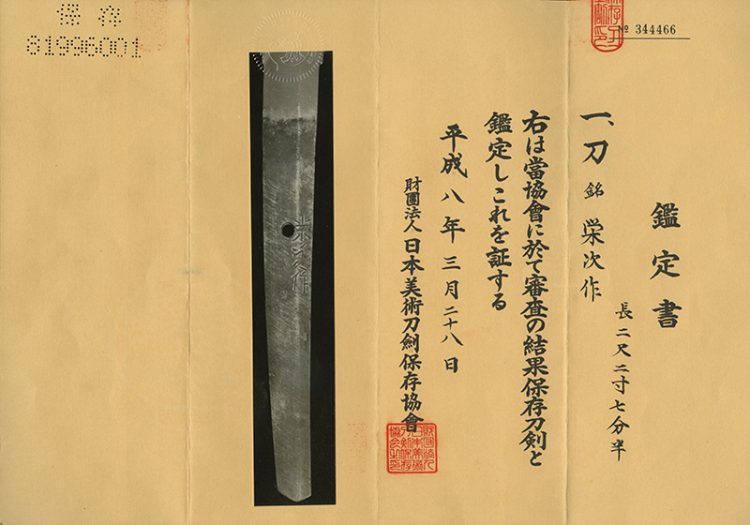 鑑定書
一、刀 銘 栄次作
長二尺二寸七分半
右は當協會に於て審査の結果保存刀剣と
鑑定しこれを証する
平成八年三月二十八日
財團法人 日本美術刀劍保存協會
№ 344466
保存
81996001
栄次作